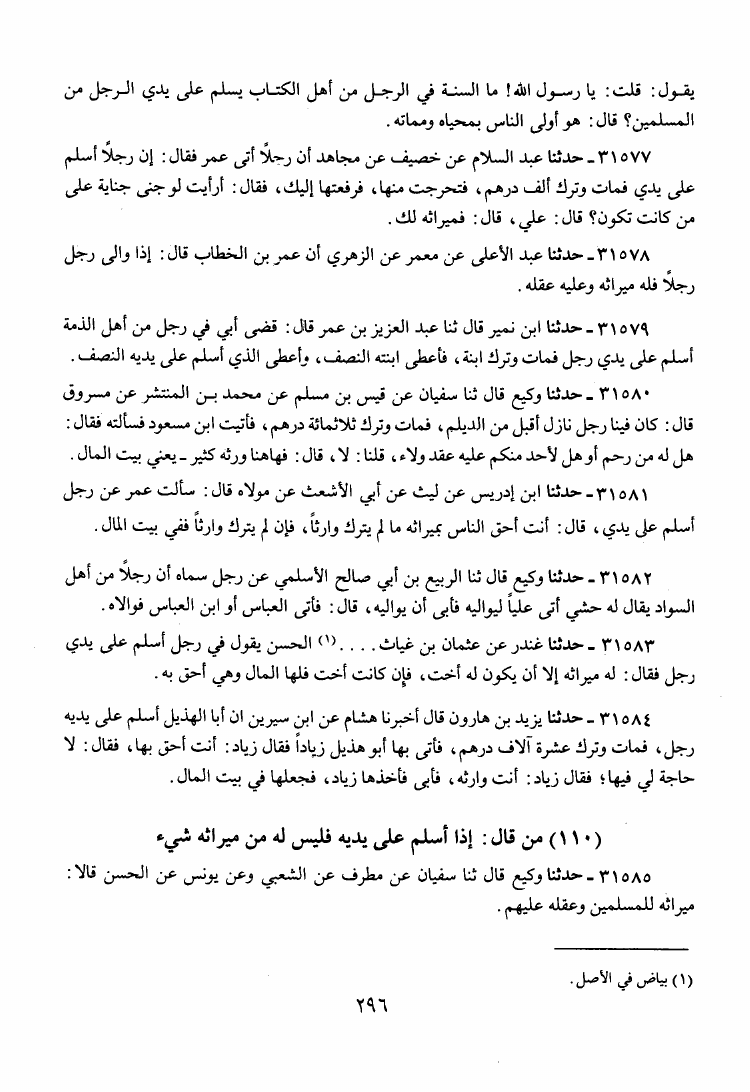 يقول: قلت: يا رسول الله! ما السنة في الرجل من أهل الكتاب يسلم على يدي الرجل من
المسلمين؟ قال: هو أولى الناس بمحياه ومماته.
٣١٥٧٧ - حدثنا عبد السلام عن خصيف عن مجاهد أن رجلاً أتى عمر فقال: إن رجلاً أسلم
على يدي فمات وترك ألف درهم، فتحرجت منها، فرفعتها إليك، فقال: أرأيت لو جنى جناية على
من كانت تكون؟ قال: علي، قال: فميراثه لك.
٣١٥٧٨ - حدثنا عبد الأعلى عن معمر عن الزهري أن عمر بن الخطاب قال: إذا والى رجل
رجلاً فله ميراثه وعليه عقله.
٣١٥٧٩ - حدثنا ابن نمير قال ثنا عبد العزيز بن عمر قال: قضى أبي في رجل من أهل الذمة
أسلم على يدي رجل فمات وترك ابنة، فأعطى ابنته النصف، وأعطى الذي أسلم على يديه النصف.
٣١٥٨٠ - حدثنا وكيع قال ثنا سفيان عن قيس بن مسلم عن محمد بن المنتشر عن مسروق
قال: كان فينا رجل نازل أقبل من الديلم، فمات وترك ثلاثمائة درهم، فأتيت ابن مسعود فسألته فقال:
هل له من رحم أو هل لأحد منكم عليه عقد ولاء، قلنا: لا، قال: فهاهنا ورثه كثير - يعني بيت المال.
٣١٥٨١ - حدثنا ابن إدريس عن ليث عن أبي الأشعث عن مولاه قال: سألت عمر عن رجل
أسلم على يدي، قال: أنت أحق الناس بميراثه ما لم يترك وارثاً، فإن لم يترك وارثاً ففي بيت المال.
٣١٥٨٢ - حدثنا وكيع قال ثنا الربيع بن أبي صالح الأسلمي عن رجل سماه أن رجلاً من أهل
السواد يقال له حشي أتى علياً ليواليه فأبى أن يواليه، قال: فأتى العباس أو ابن العباس فوالاه.
٣١٥٨٣ - حدثنا غندر عن عثمان بن غياث. . . .(١) الحسن يقول في رجل أسلم على يدي
رجل فقال: له ميراثه إلا أن يكون له أخت، فإن كانت أخت فلها المال وهي أحق به.
٣١٥٨٤ - حدثنا يزيد بن هارون قال أخبرنا هشام عن ابن سيرين ان أبا الهذيل أسلم على يديه
رجل، فمات وترك عشرة آلاف درهم، فأتى بها أبو هذيل زياداً فقال زياد: أنت أحق بها، فقال: لا
حاجة لي فيها؛ فقال زياد: أنت وارثه، فأبى فأخذها زياد، فجعلها في بيت المال.
(١١٠) من قال: إذا أسلم على يديه فليس له من ميراثه شيء
٣١٥٨٥ - حدثنا وكيع قال ثنا سفيان عن مطرف عن الشعبي وعن يونس عن الحسن قالا:
ميراثه للمسلمين وعقله عليهم.
(١) بياض في الأصل.
٢٩٦